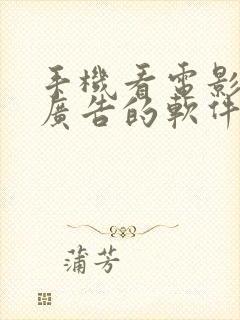 手機看電影
廣告的軟件
蒲芳